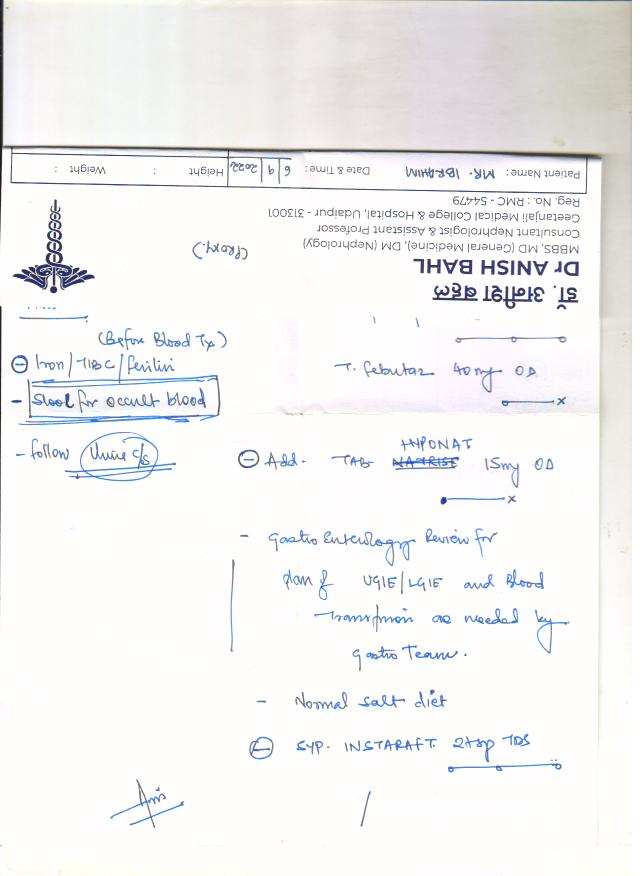 डॉ. अनीश बहल
Dr ANISH BAHL
MBBS, MD (General Medicine), DM (Nephrology)
Consultant Nephrologist & Assistant Professor
Geetanjali Medical College & Hospital, Udaipur - 313001
Reg. No. : RMC - 54479
(Proxy)
Patient Name : MR. IBRAHIM Date & Time : 6/9/2022 Height : Weight :
(Before Blood Tx)
Iron/TIBC/feritin
- Stool for occult blood
- follow Urine c/s
T. febutaz 40mg OD
Add. TAB NATRISE TNPONAT 15mg OD
- Gastro Enterology Review for
plan of UGIE/LGIE and Blood
Transfusion as needed by
Gastro Team.
- Normal salt diet
SYP. INSTARAFT 2tsp TDS